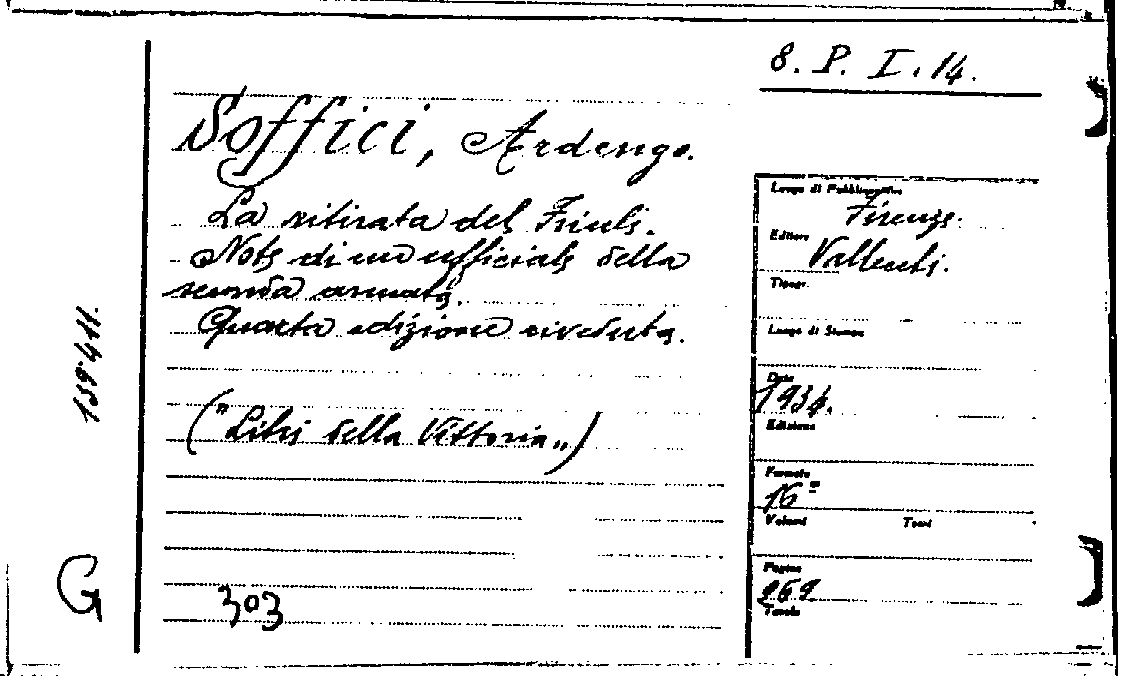 8. P. I. 14.
Soffici, Ardengo.
La ritirata del Friuli.
Note di un ufficiale della
seconda armata.
Quarta edizione riveduta.
("Libri della Vittoria„)
303
G
Luogo di Pubblicazione
Firenze.
Editore
Vallecchi.
Tipogr.
Luogo di Stampa
Data
1934.
Edizione
Formato
16°
Volumi Tomi
Pagine
269
Tavole